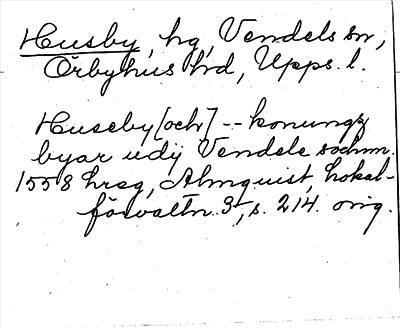 Husby, hg, Vendels sn,
Örbyhus hd, Upps. l.
Huseby [och] -- konungz
byar udij Vendele sochnn.
1558 hreg, Almquist, Lokal-
förvaltn. 3, s. 214. orig.